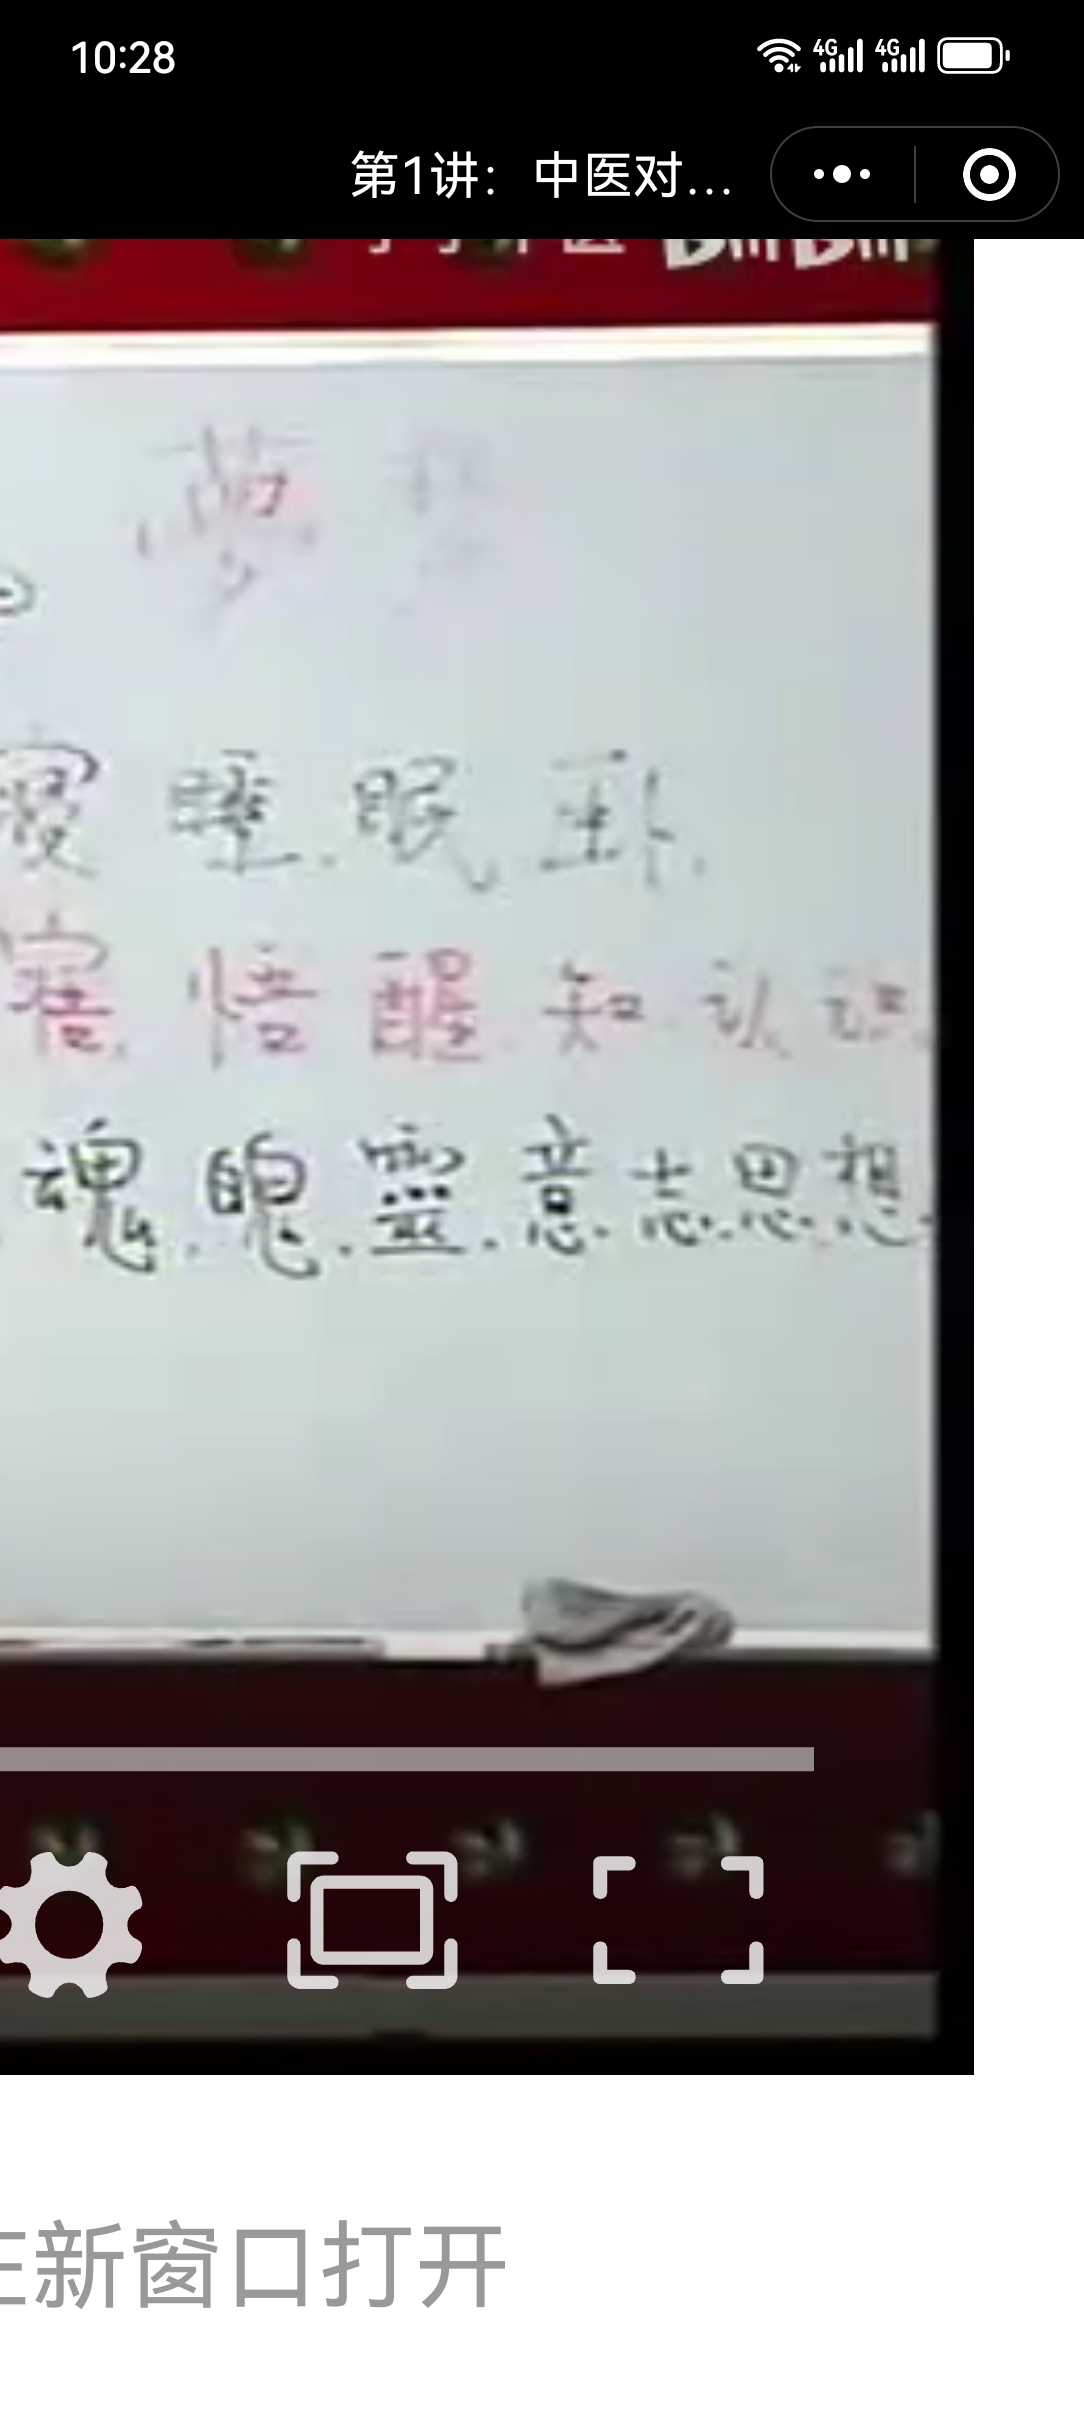 10:28
4G 4G
第1讲：中医对…
夢
寝 睡 眠 卧
寤 悟 醒 知 认 识
魂 魄 靈 意 志 思 想
新窗口打开